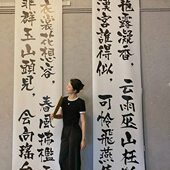 露凝香,雲雨巫山枉
漢宮誰得似,可憐飛燕
裳花想容,春風拂檻
非群玉山頭見,會向瑤